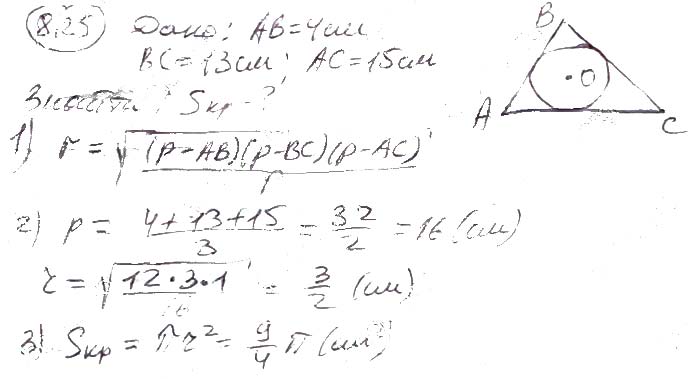 8.25 Дано: AB=4см
BC=13см; AC=15см
Знайти: Sкр-?
B
O
A
C
1) r = √((p-AB)(p-BC)(p-AC)/p)
2) p = (4+13+15)/3 = 32/2 = 16 (см)
r = √(12·3·1/16) = 3/2 (см)
3) Sкр = πr² = 9/4 π (см²)